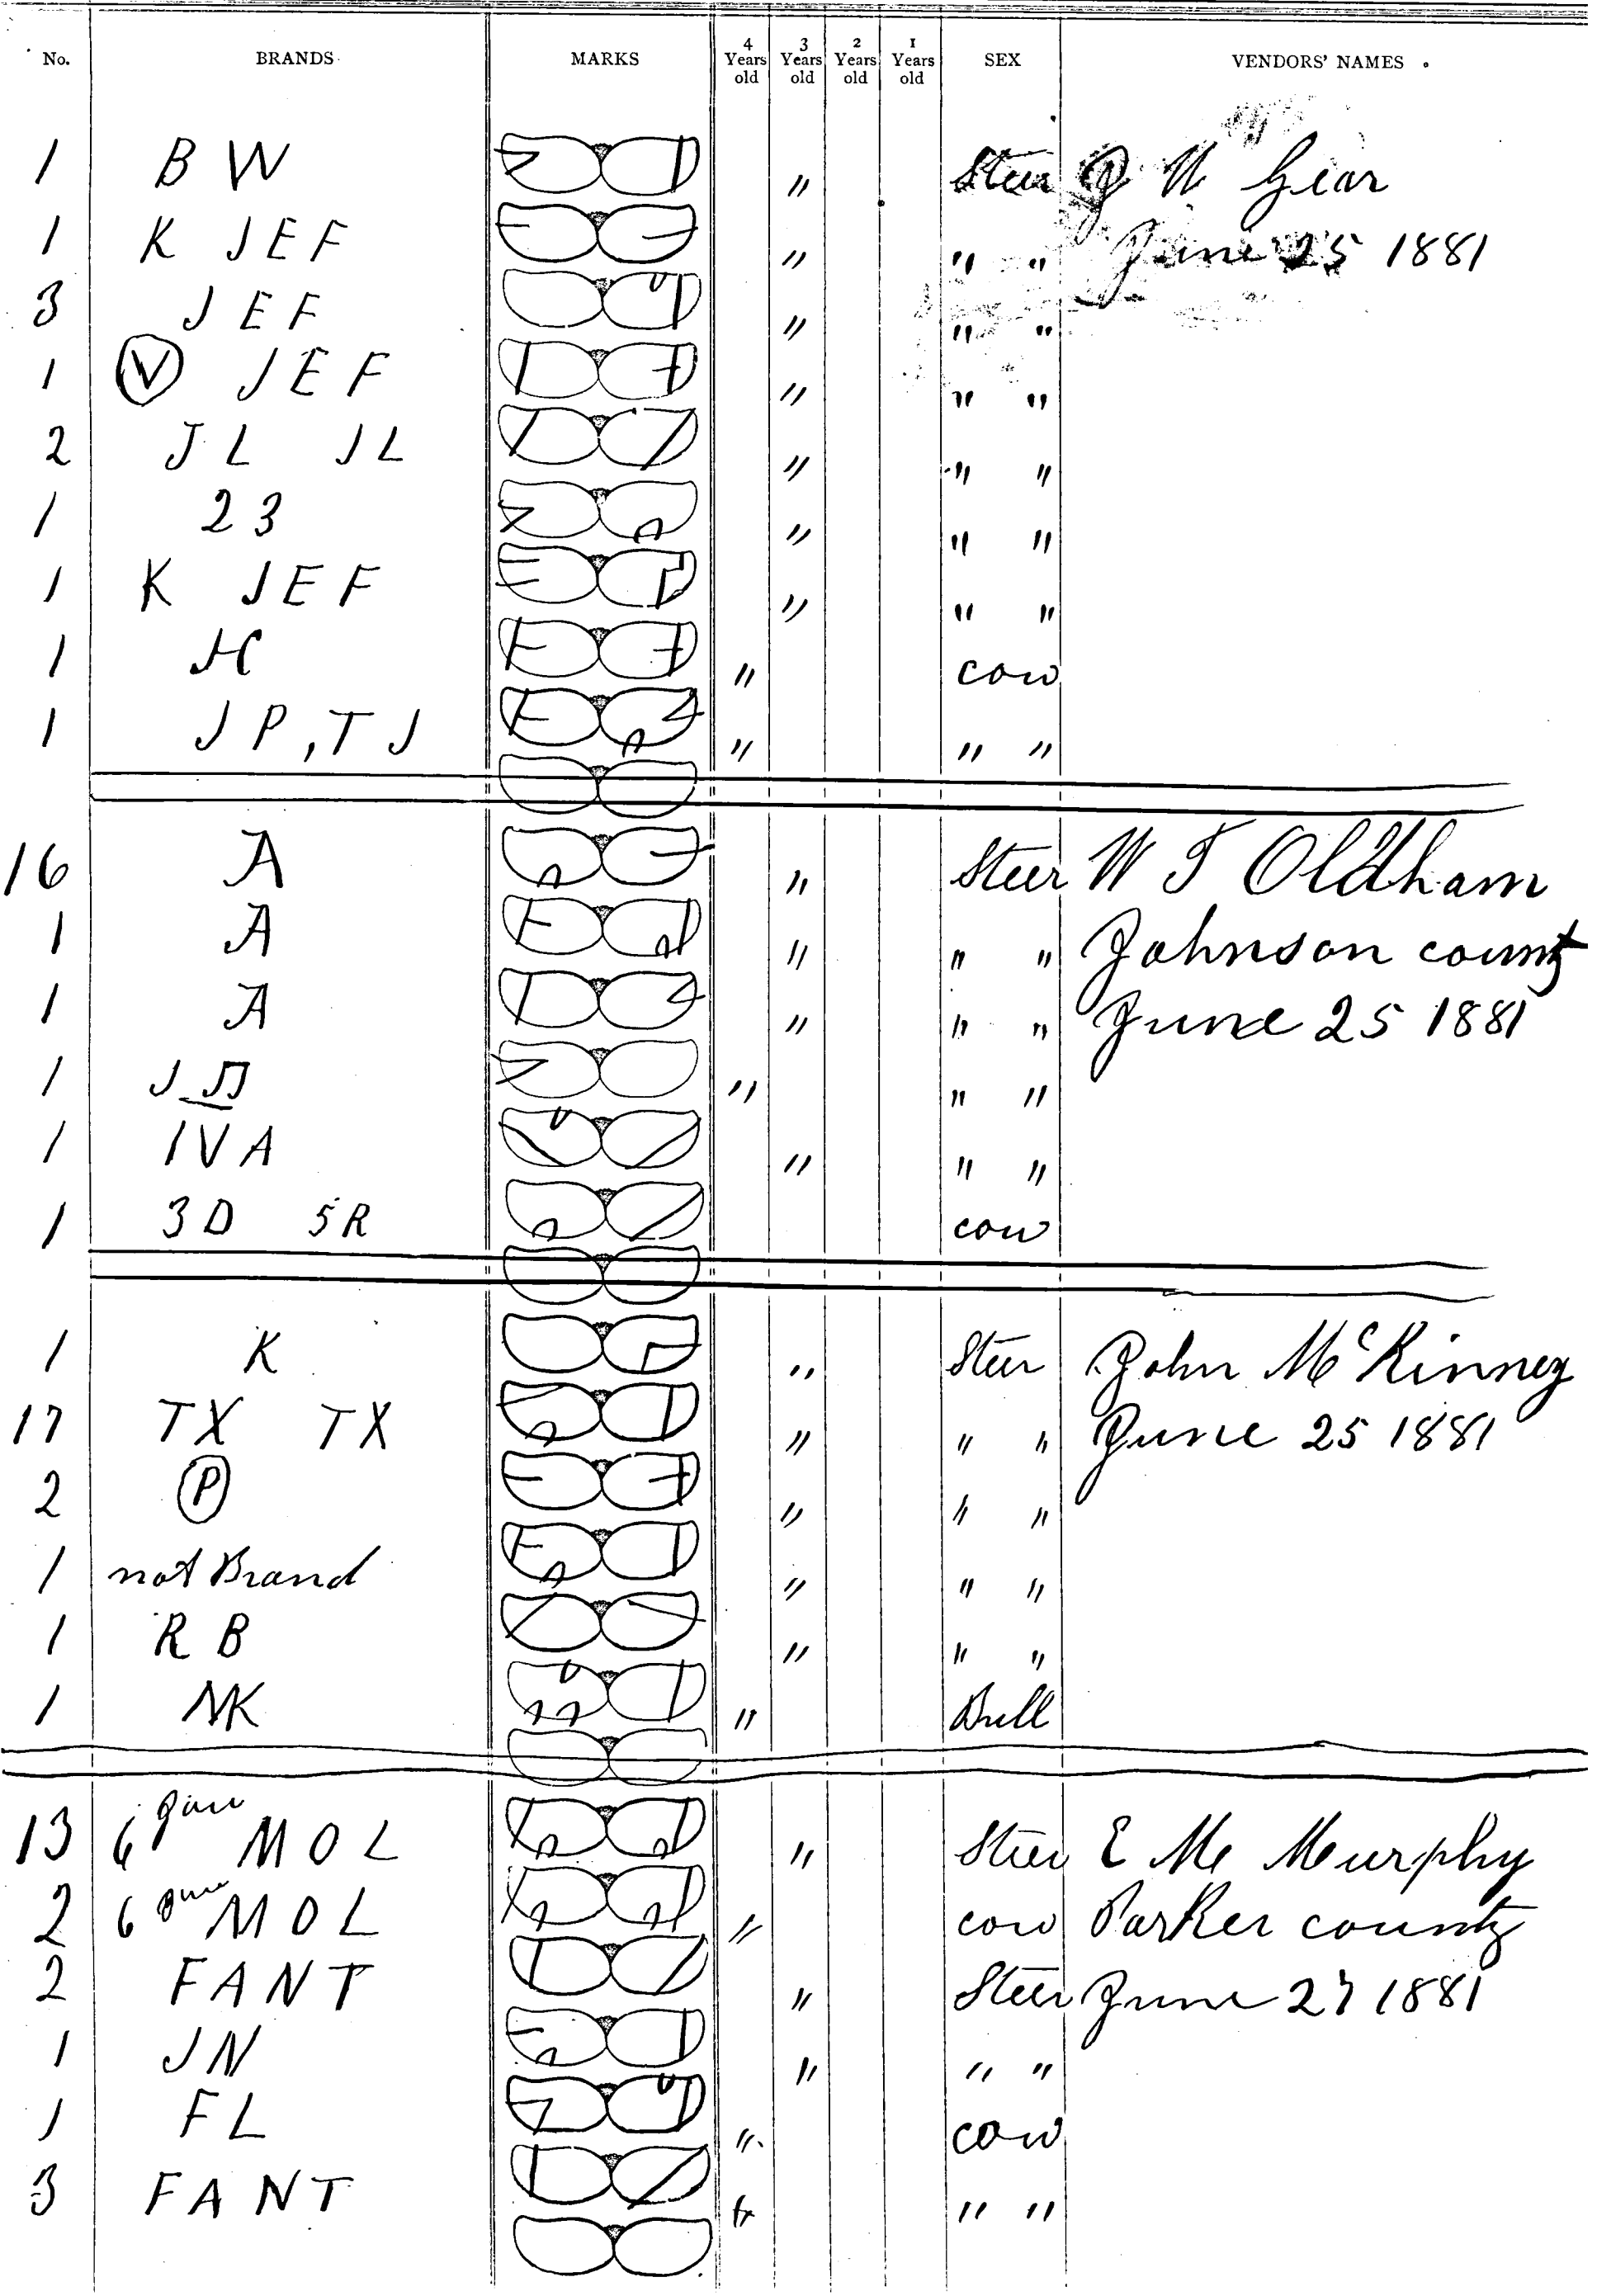 No. BRANDS MARKS 4 Years old 3 Years old 2 Years old 1 Years old SEX VENDORS' NAMES
1 B W " Steer J W Gear
1 K JEF " " " June 25 1881
3 JEF " " "
1 V JEF " " "
2 JL JL " " "
1 23 " " "
1 K JEF " " "
1 " cow
1 JP, TJ " " "
16 A " Steer W T Oldham
1 A " " " Johnson county
1 A " " " June 25 1881
1 J " " "
1 IVA " " "
1 3D 5R cow
1 K " Steer John McKinney
17 TX TX " " " June 25 1881
2 P " " "
1 not Brand " " "
1 R B " " "
1 NK " Bull
13 6 MOL " Steer E M Murphy
2 6 MOL " cow Parker county
2 FANT " Steer June 27 1881
1 JN " " "
1 FL " cow
3 FANT " " "